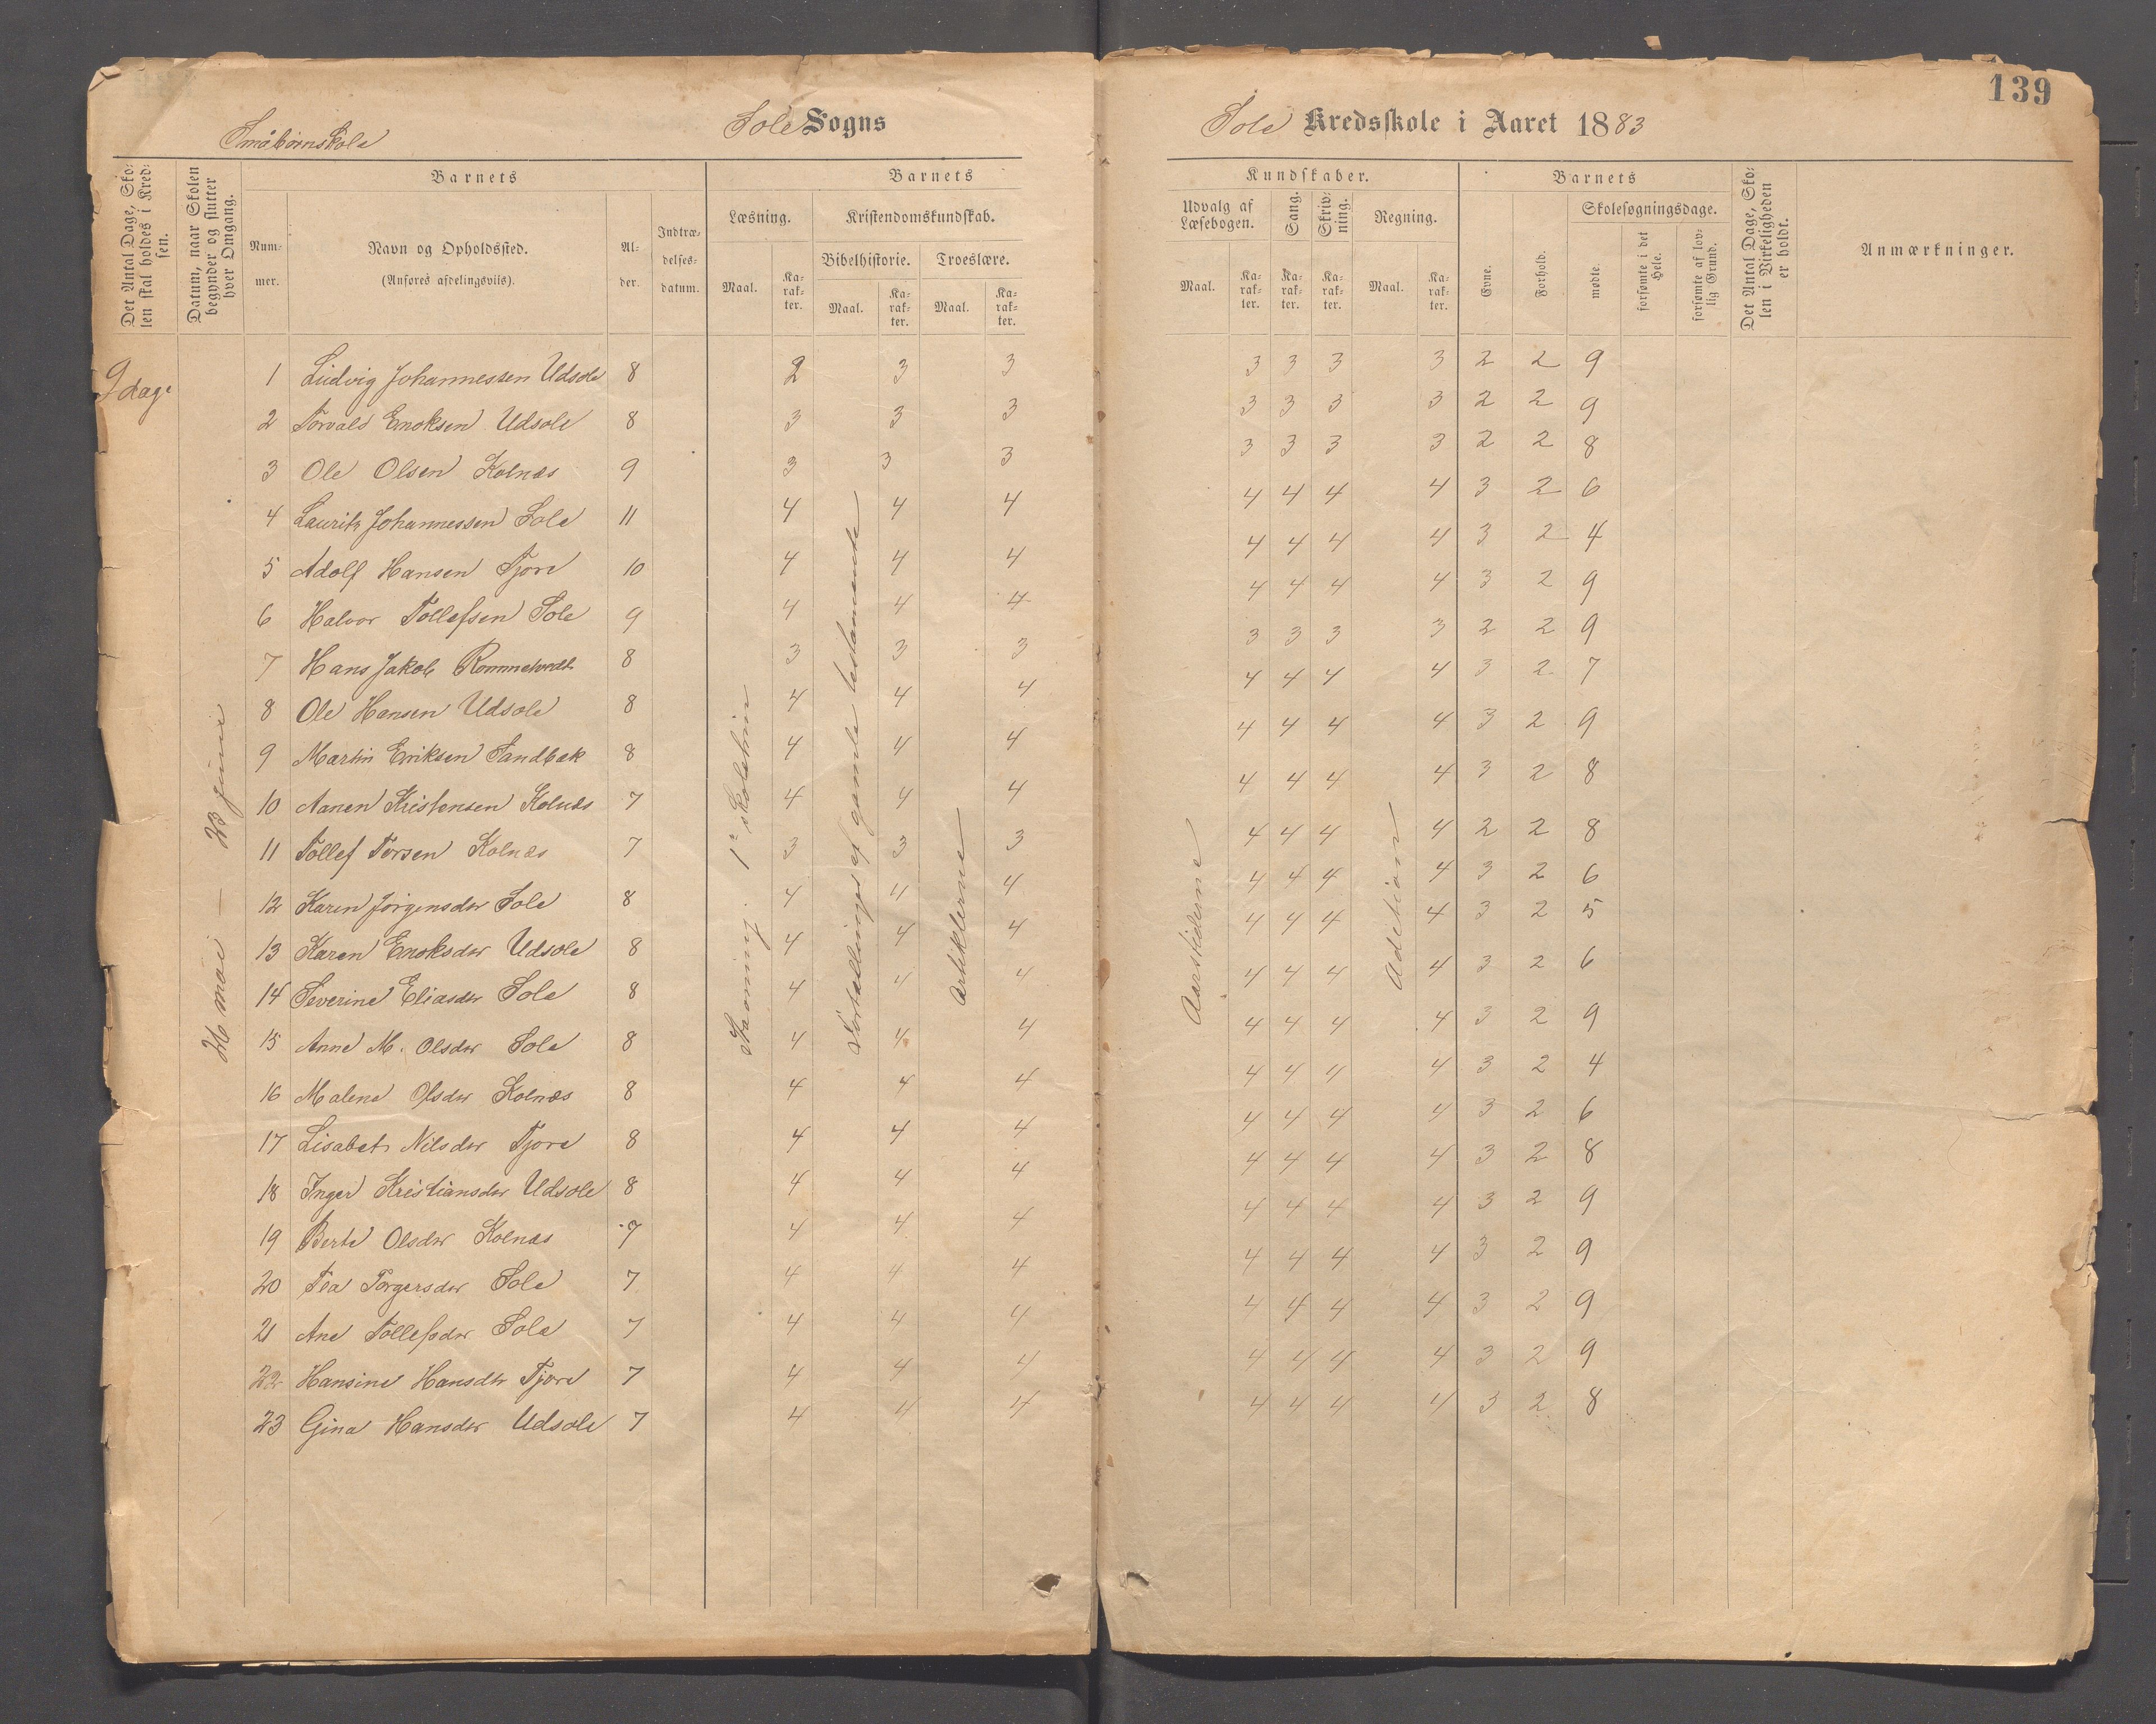 139
Småbørnskole Sole Sogns Sole Kredsskole i Aaret 1883
Det Antal Dage, Skolen skal holdes i Kredsen.
Datum, naar Skolen begynder og slutter hver Omgang.
Barnets
Nummer.
Navn og Opholdssted.
(Anføres afdelingsviis).
Alder.
Indtrædelsesdatum.
Barnets Kundskaber.
Læsning.
Maal. Karakter.
Kristendomskundskab.
Bibelhistorie. Troeslære.
Maal. Karakter. Maal. Karakter.
Udvalg af Læsebogen.
Maal. Karakter.
Sang. Karakter.
Skrivning. Karakter.
Regning.
Maal. Karakter.
Barnets
Evne. Forhold.
Skolesøgningsdage.
mødte. forsømte i det Hele. forsømte af lovlig Grund.
Det Antal Dage, Skolen i Virkeligheden er holdt.
Anmærkninger.
9 dage
mai — 23 junie
Stavning. 1ste skoletrin
Fortællinger af gamle testamente
Artiklerne
Aarstiderne
Adetion
1 Ludvig Johannessen Udsole 8 2 3 3 3 3 3 3 2 2 9
2 Torvald Enoksen Udsole 8 3 3 3 3 3 3 3 2 2 9
3 Ole Olsen Kolnæs 9 3 3 3 3 3 3 3 2 2 8
4 Lauritz Johannessen Sole 11 4 4 4 4 4 4 4 3 2 6
5 Adolf Hansen Tjore 10 4 4 4 4 4 4 4 3 2 4
6 Halvor Tollefsen Sole 9 4 4 4 4 4 4 4 3 2 9
7 Hans Jakob 8 3 3 3 3 3 3 3 2 2 9
8 Ole Hansen Udsole 8 4 4 4 4 4 4 4 3 2 7
9 Martin Eriksen Sandbæk 8 4 4 4 4 4 4 4 3 2 9
10 Aanen Kristensen Kolnæs 7 4 4 4 4 4 4 4 3 2 8
11 Tollef Torsen Kolnæs 7 3 3 3 4 4 4 4 2 2 8
12 Karen Jørgensdtr Sole 8 4 4 4 4 4 4 4 3 2 6
13 Karen Enoksdtr Udsole 8 4 4 4 4 4 4 4 3 2 5
14 Severine Eliasdtr Sole 8 4 4 4 4 4 4 4 3 2 6
15 Anne M. Olsdtr Sole 8 4 4 4 4 4 4 4 3 2 9
16 Malene Olsdtr Kolnæs 8 4 4 4 4 4 4 4 3 2 4
17 Lisabet Nilsdtr Tjore 8 4 4 4 4 4 4 4 3 2 6
18 Inger Kristiansdtr Udsole 8 4 4 4 4 4 4 4 3 2 8
19 Berte Olsdtr Kolnæs 7 4 4 4 4 4 4 4 3 2 9
20 Tea Torgersdtr Sole 7 4 4 4 4 4 4 4 3 2 9
21 Ane Tollefsdtr Sole 7 4 4 4 4 4 4 4 3 2 9
22 Hansine Hansdtr Tjore 7 4 4 4 4 4 4 4 3 2 9
23 Gina Hansdtr Udsole 7 4 4 4 4 4 4 4 3 2 8